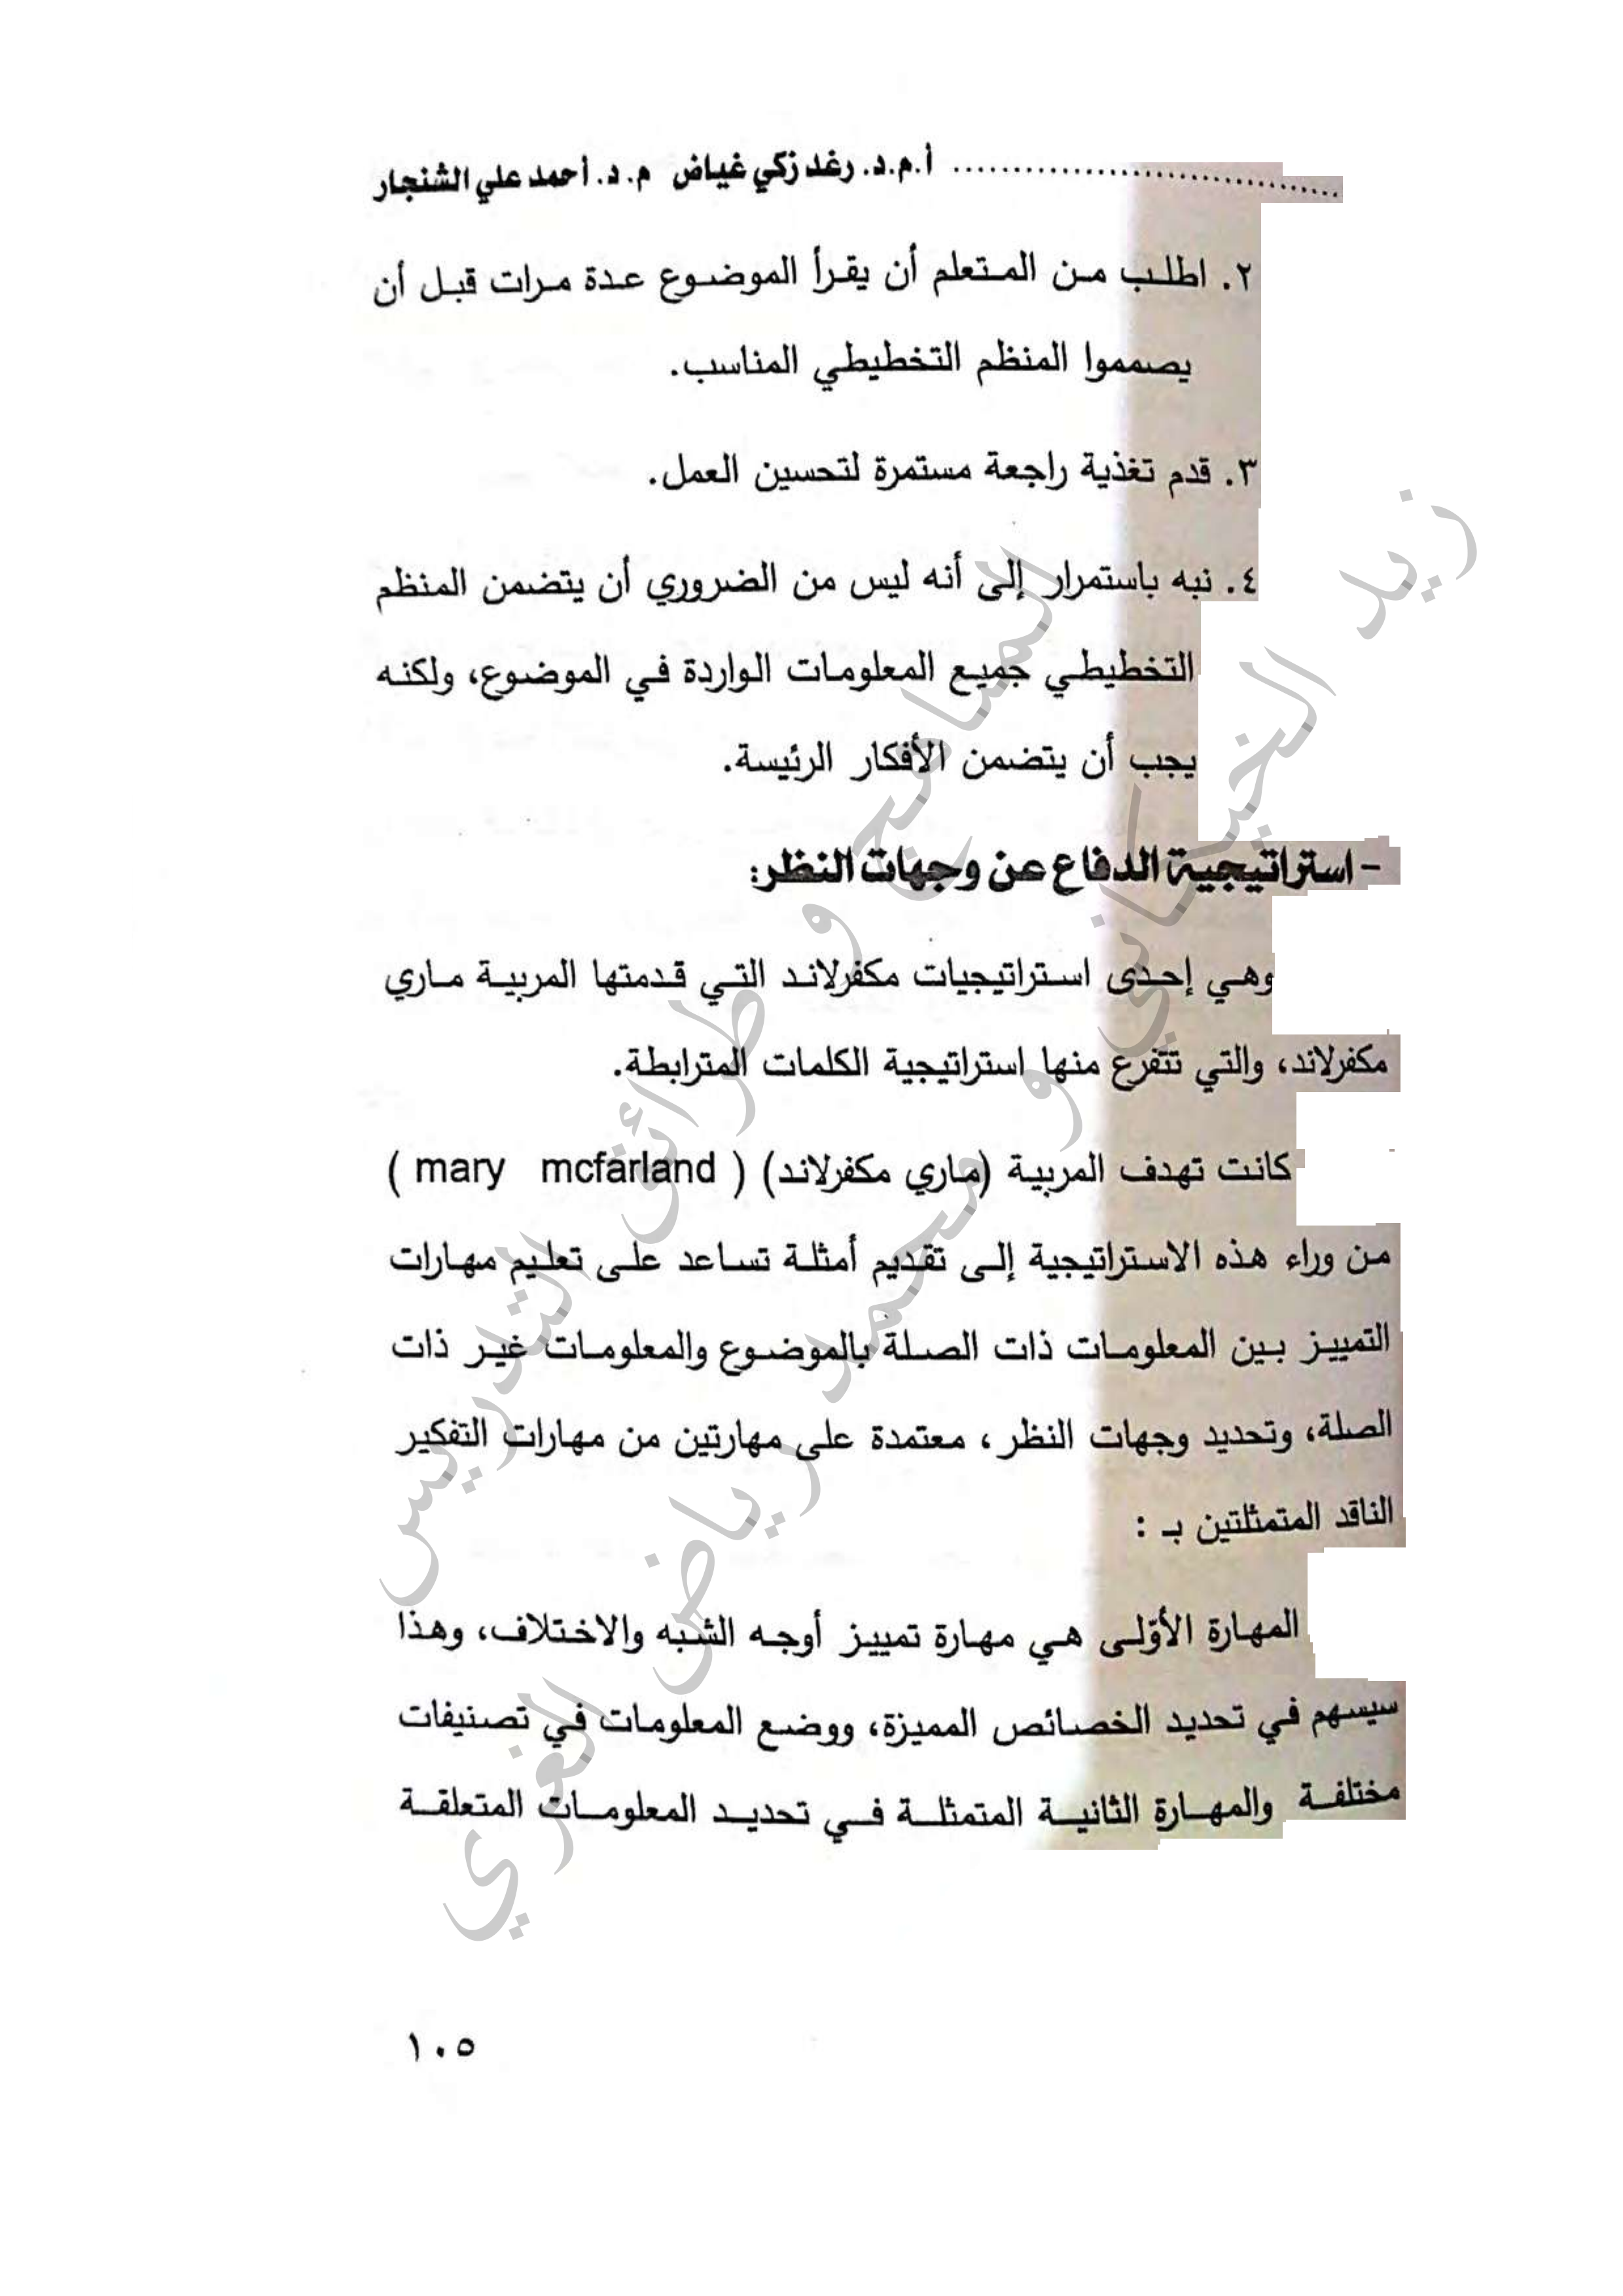 أ.م.د. رغد زكي غياض م. د. أحمد علي الشنجار
٢. اطلب من المتعلم أن يقرأ الموضوع عدة مرات قبل أن
يصمموا المنظم التخطيطي المناسب.
٣. قدم تغذية راجعة مستمرة لتحسين العمل.
٤. نبه باستمرار إلى أنه ليس من الضروري أن يتضمن المنظم
التخطيطي جميع المعلومات الواردة في الموضوع، ولكنه
يجب أن يتضمن الأفكار الرئيسة.
- استراتيجية الدفاع عن وجهات النظر:
وهي إحدى استراتيجيات مكفرلاند التي قدمتها المربية ماري
مكفرلاند، والتي تتفرع منها استراتيجية الكلمات المترابطة.
كانت تهدف المربية (ماري مكفرلاند) ( mary mcfarland )
من وراء هذه الاستراتيجية إلى تقديم أمثلة تساعد على تعليم مهارات
التمييز بين المعلومات ذات الصلة بالموضوع والمعلومات غير ذات
الصلة، وتحديد وجهات النظر، معتمدة على مهارتين من مهارات التفكير
الناقد المتمثلتين بـ :
المهارة الأوّلى هي مهارة تمييز أوجه الشبه والاختلاف، وهذا
سيسهم في تحديد الخصائص المميزة، ووضع المعلومات في تصنيفات
مختلفة والمهارة الثانية المتمثلة في تحديد المعلومات المتعلقة
١٠٥
المناهج و طرائق التدريس
زيد الخيكاني و محمد رياض الغزي